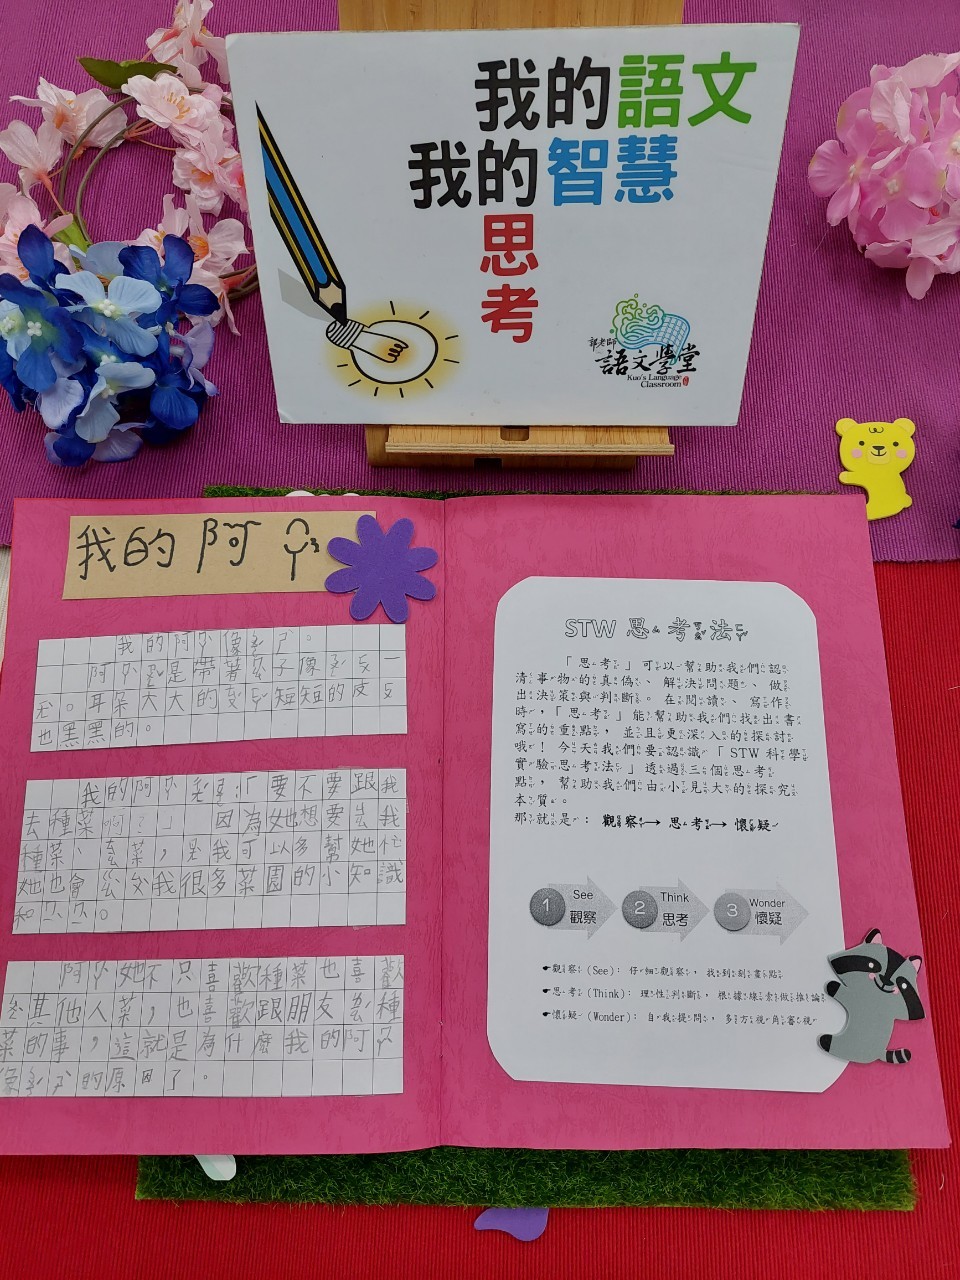 我的語文
我的智慧
思
考
郭老師
語文學堂
Kuo's Language
Classroom
我的阿
我的阿 像
阿 是帶著 子像 一
。耳朵大大的 短短的皮
也黑黑的。
我的阿 :「要不要跟我
去種菜啊?」 因為她想要 我
種菜、 菜,我可以多幫她忙
她也會 我很多菜園的小知識
和 。
阿 她不只喜歡種菜也喜歡
其他人菜,也喜歡跟朋友 種
菜的事,這就是為什麼我的阿
像 的原因了。
STW 思考法
「思考」可以幫助我們認
清事物的真偽、解決問題、做
出決策與判斷。在閱讀、寫作
時,「思考」能幫助我們找出書
寫的重點,並且更深入的探討
哦!今天我們要認識「STW 科學
實驗思考法」透過三個思考
點,幫助我們由小見大的探究
本質。
那就是:觀察→思考→懷疑
1 See 觀察
2 Think 思考
3 Wonder 懷疑
☛觀察(See):仔細觀察,找到刻畫點
☛思考(Think):理性判斷,根據線索做推論
☛懷疑(Wonder):自我提問,多方視角審視